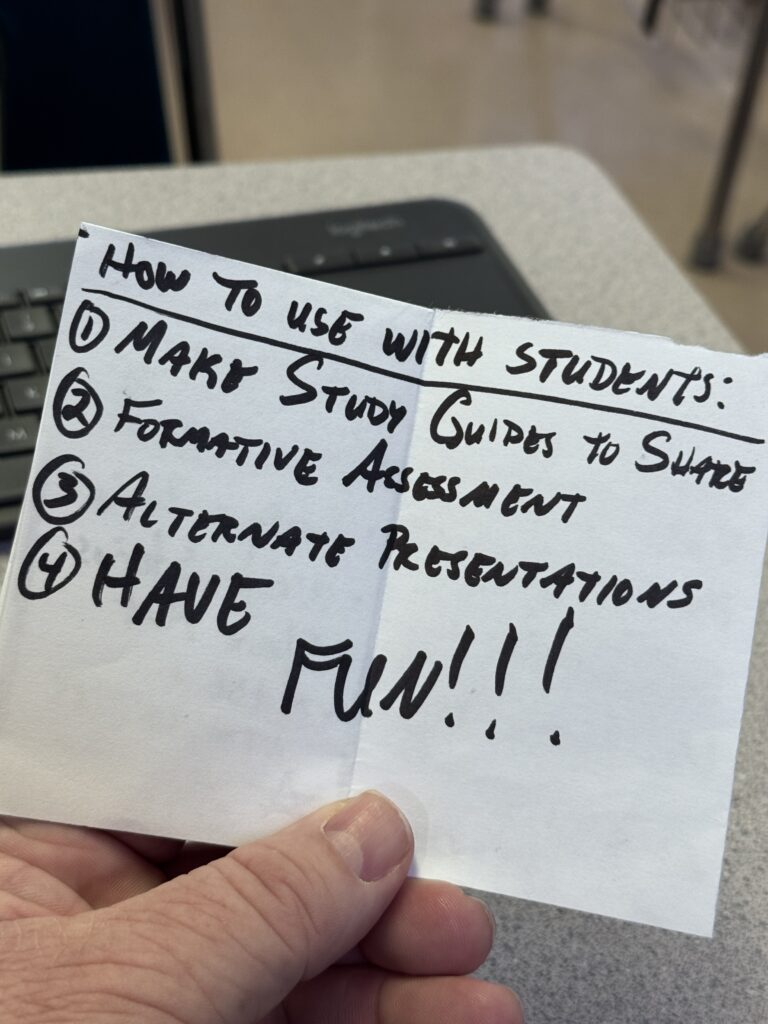 logitech
HOW TO USE WITH STUDENTS:
① MAKE STUDY GUIDES TO SHARE
② FORMATIVE ASSESSMENT
③ ALTERNATE PRESENTATIONS
④ HAVE
FUN!!!